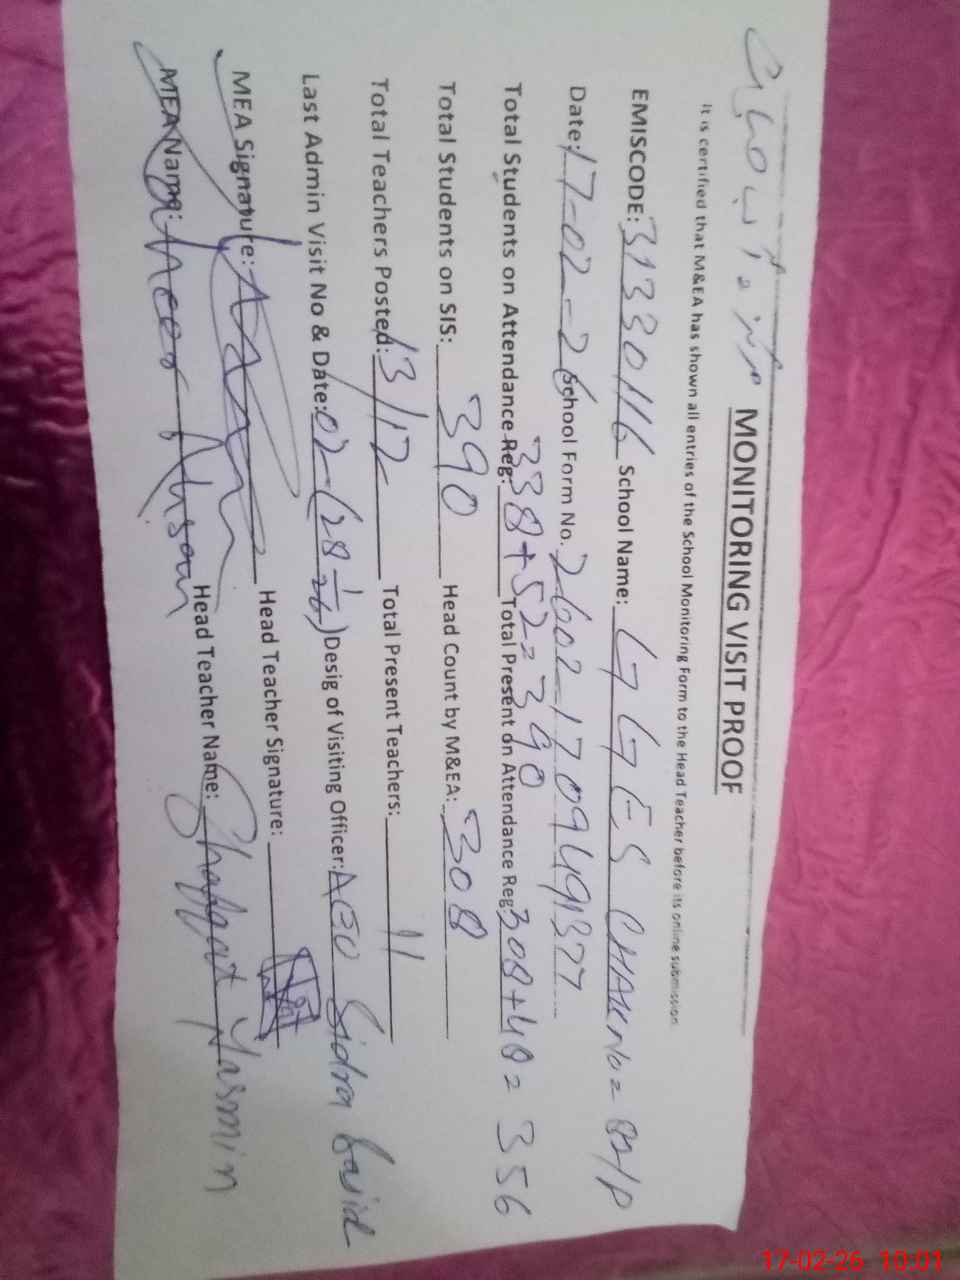 MONITORING VISIT PROOF
It is certified that M&EA has shown all entries of the School Monitoring Form to the Head Teacher before its online submission
EMISCODE: 31330116 School Name: GGES CHAK No =
Date: 17-02-26 School Form No. 2602-1709949377
Total Students on Attendance Reg: 338+52=390 Total Present on Attendance Reg: 308+48=356
Total Students on SIS: 390 Head Count by M&EA: 308
Total Teachers Posted: 13/12 Total Present Teachers: 11
Last Admin Visit No & Date: 02-(28-1-26) Desig of Visiting Officer: AEO Sidra
MEA Signature: Head Teacher Signature:
MEA Name: Head Teacher Name: Shafqat Yasmin
17-02-26 10:01